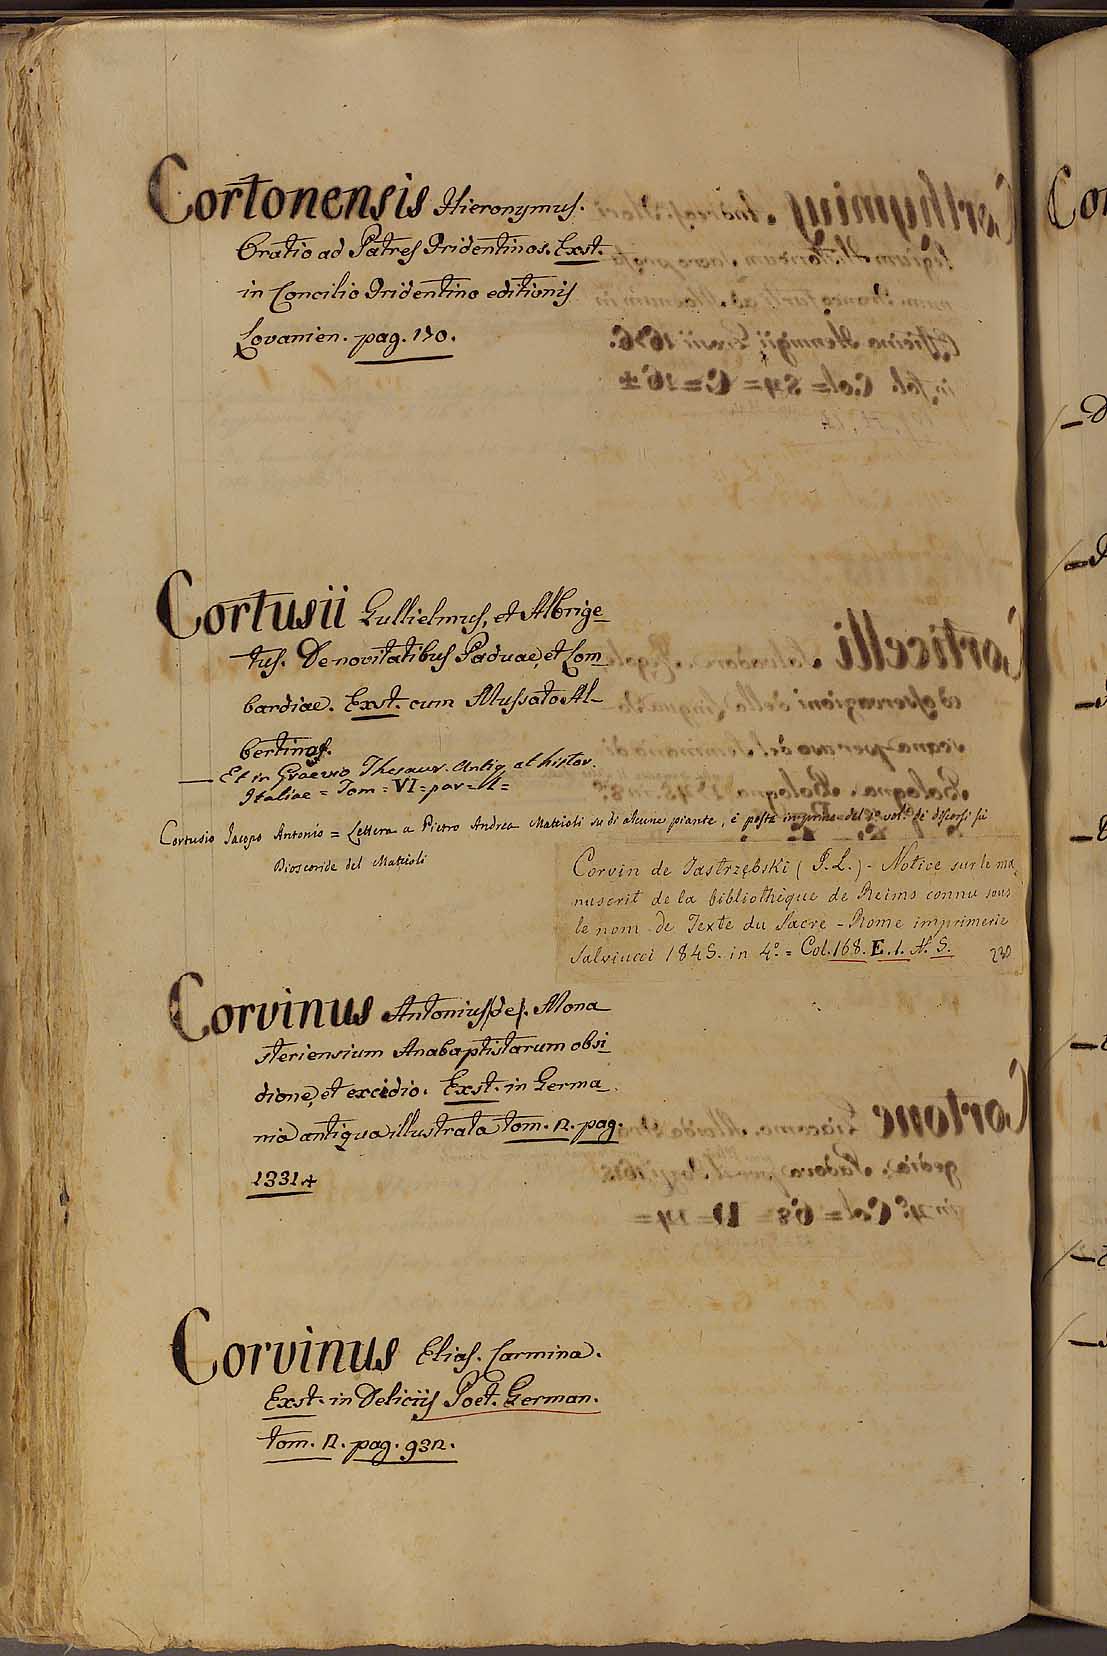 Cortonensis Hieronymus.
Oratio ad Patres Tridentinos. Exst.
in Concilio Tridentino editionis
Lovanien. pag. 170.
Cortusii Gullielmus, et Albrige_
tus. De novitatibus Paduae, et Lom_
bardiae. Exst. cum Mussato Al_
bertino.
— Et in Graevio Thesaur. Antiq. at histor.
Italiae = Tom = VI = par = 1 =
Cortusio Jacopo Antonio = Lettera a Pietro Andrea Mattioli su di alcune piante, è posta in del 1º vol. di discorsi su
Dioscoride del Mattioli
Corvin de Jastrzębski (P. L.) - Notice sur le ma_
nuscrit de la bibliothèque de Reims connu sous
le nom de Texte du Sacre - Rome imprimerie
Salviucci 1845. in 4º = Col. 168. E. 1. N. 5. 230
Corvinus Antonius de Mona
steriensium Anabaptistarum obsi_
dione, et excidio. Exst. in Germa_
nia antiqua illustrata tom. 2. pag.
1331.
Corvinus Elias. Carmina.
Exst. in Deliciis Poet. German.
tom. 2. pag. 932.